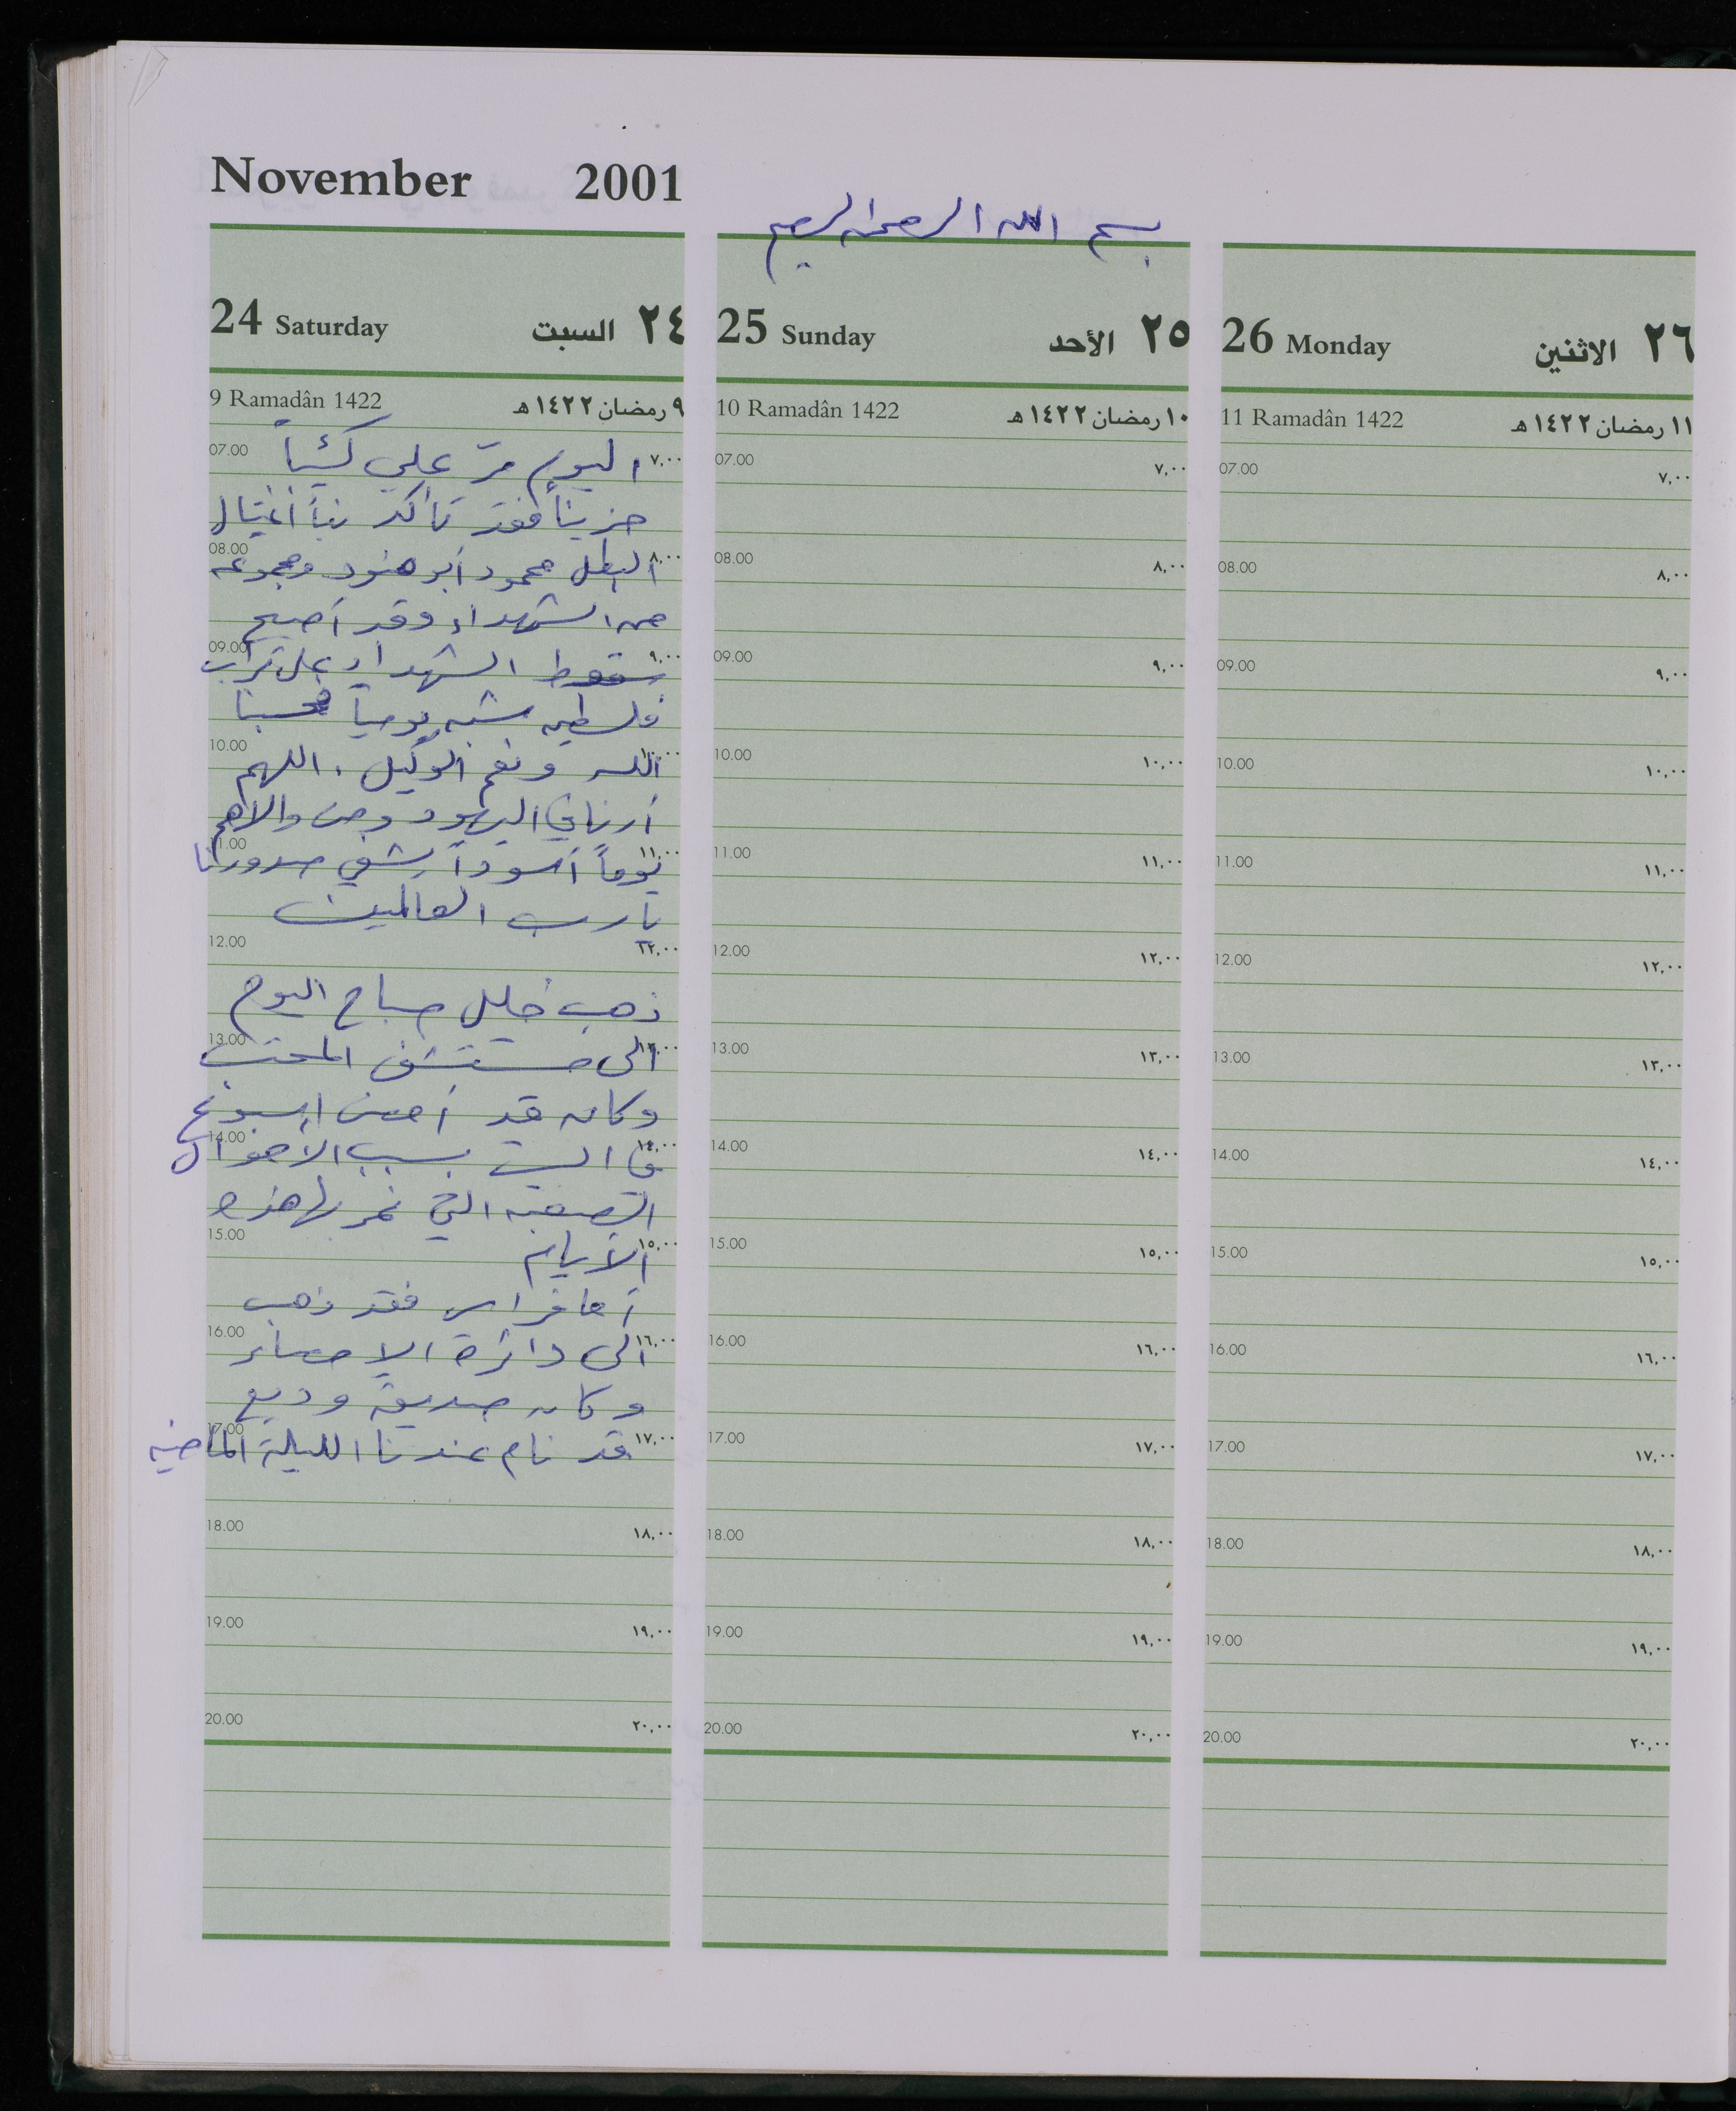 November 2001
بسم الله الرحمن الرحيم
24 Saturday السبت ٢٤
9 Ramadân 1422 ٩ رمضان ١٤٢٢ هـ
07.00 ٧,٠٠
اليوم مرّ علي كئيباً
حزيناً فقد تأكد نبأ اغتيال
08.00 ٨,٠٠
البطل محمود أبو هنود ومجموعه
من الشهداء وقد أصبح
09.00 ٩,٠٠
سقوط الشهداء على تراب
فلسطين شبه يومياً فحسبنا
10.00 ١٠,٠٠
الله ونعم الوكيل . اللهم
أرنا في اليهود ومن والاهم
11.00 ١١,٠٠
يوماً أسوداً يشفي صدورنا
يا رب العالمين
12.00 ١٢,٠٠
ذهب خليل صباح اليوم
13.00 ١٣,٠٠
الى مستشفى
وكان قد أمضى اسبوع
14.00 ١٤,٠٠
في البيت بسبب الأحوال
الصعبة التي نمر بها هذه
15.00 ١٥,٠٠
الأيام
أما فراس فقد ذهب
16.00 ١٦,٠٠
الى دائرة الاحصاء
وكان صديقه وديع
17.00 ١٧,٠٠
قد نام عندنا الليلة الماضيه
18.00 ١٨,٠٠
19.00 ١٩,٠٠
20.00 ٢٠,٠٠
25 Sunday الأحد ٢٥
10 Ramadân 1422 ١٠ رمضان ١٤٢٢ هـ
07.00 ٧,٠٠
08.00 ٨,٠٠
09.00 ٩,٠٠
10.00 ١٠,٠٠
11.00 ١١,٠٠
12.00 ١٢,٠٠
13.00 ١٣,٠٠
14.00 ١٤,٠٠
15.00 ١٥,٠٠
16.00 ١٦,٠٠
17.00 ١٧,٠٠
18.00 ١٨,٠٠
19.00 ١٩,٠٠
20.00 ٢٠,٠٠
26 Monday الاثنين ٢٦
11 Ramadân 1422 ١١ رمضان ١٤٢٢ هـ
07.00 ٧,٠٠
08.00 ٨,٠٠
09.00 ٩,٠٠
10.00 ١٠,٠٠
11.00 ١١,٠٠
12.00 ١٢,٠٠
13.00 ١٣,٠٠
14.00 ١٤,٠٠
15.00 ١٥,٠٠
16.00 ١٦,٠٠
17.00 ١٧,٠٠
18.00 ١٨,٠٠
19.00 ١٩,٠٠
20.00 ٢٠,٠٠